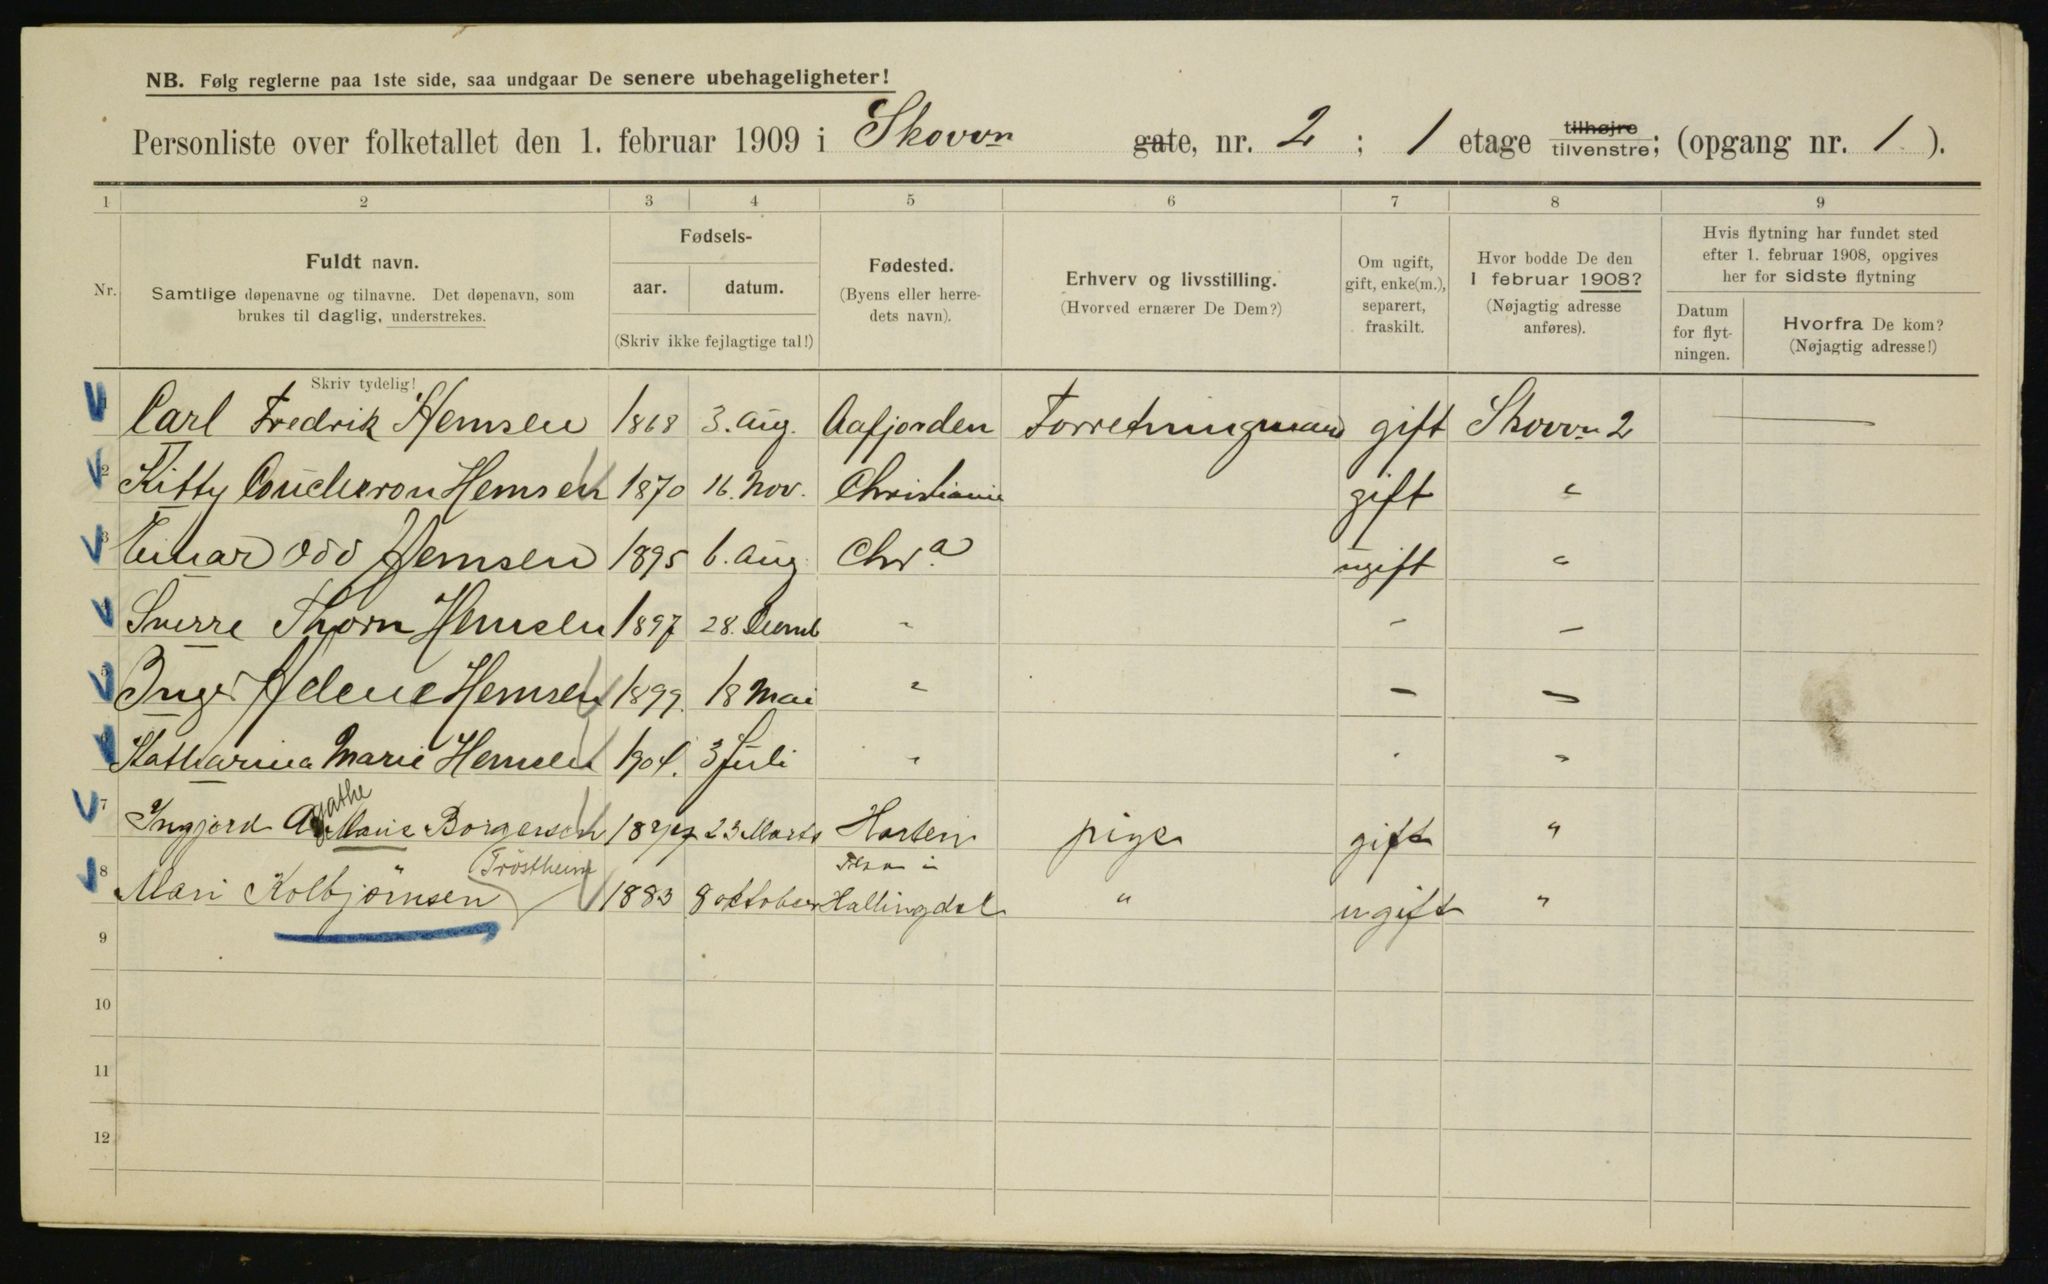 NB. Følg reglerne paa 1ste side, saa undgaar De senere ubehageligheter!
Personliste over folketallet den 1. februar 1909 i Skovvn gate, nr. 2 ; 1 etage tilhøjre tilvenstre; (opgang nr. 1 ).
1 2 3 4 5 6 7 8 9
Nr. Fuldt navn. Samtlige døpenavne og tilnavne. Det døpenavn, som brukes til daglig, understrekes.
Fødsels- aar. datum. (Skriv ikke fejlagtige tal!)
Fødested. (Byens eller herredets navn).
Erhverv og livsstilling. (Hvorved ernærer De Dem?)
Om ugift, gift, enke(m.), separert, fraskilt.
Hvor bodde De den 1 februar 1908? (Nøjagtig adresse anføres).
Hvis flytning har fundet sted efter 1. februar 1908, opgives her for sidste flytning
Datum for flytningen. Hvorfra De kom? (Nøjagtig adresse!)
Skriv tydelig!
Carl Fredrik Hemsen 1868 3. aug. Aafjorden Forretningmand gift Skovvn 2 —
2 Kitty Coucheron Hemsen 1870 16. Nov. Christiania gift "
3 Einar Odd Hemsen 1895 6. aug Chr.a ugift "
Sverre Thorn Hemsen 1897 28. " - -
5 Inger Helene Hemsen 1899. 18 Mai " - -
6 Katharina Marie Hemsen 1904. 3 Juli " " "
7 Ingjerd Agathe Marie Borgersen 23 Marts Horten pige gift "
8 Mari Kolbjørnsen Tröstheim 1883 8 oktober Hallingdal " ugift "
9
10
11
12